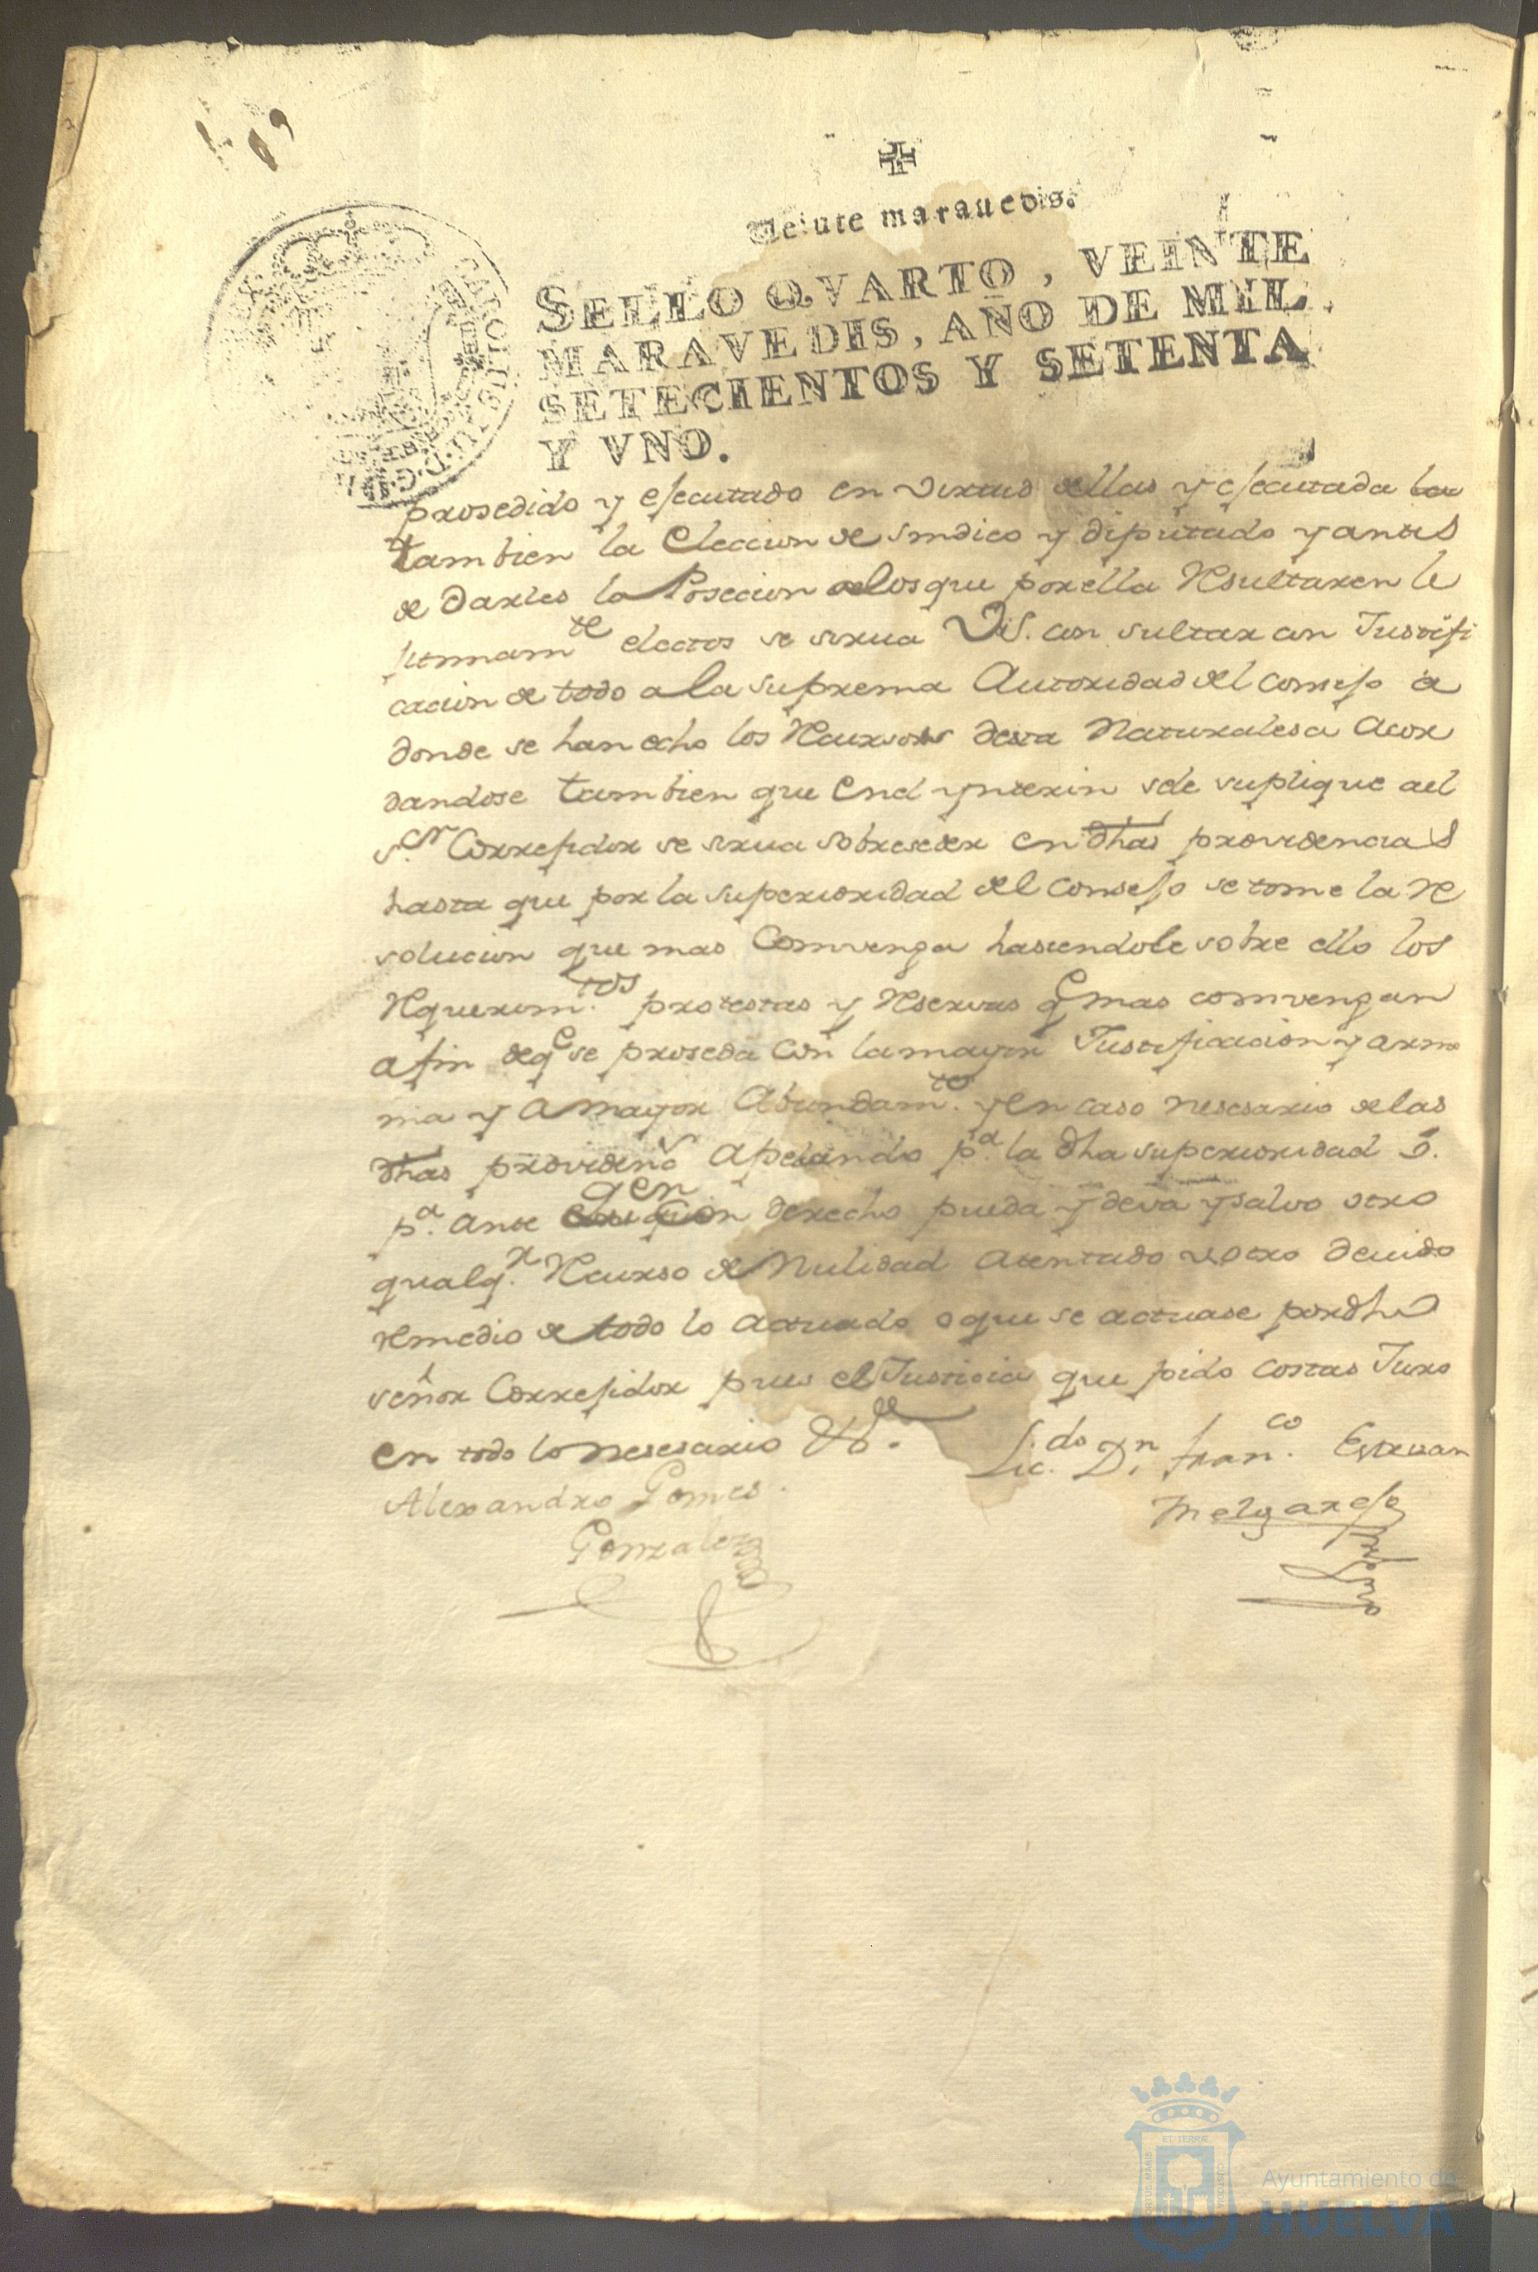 Veiute marauedis.
SELLO QVARTO, VEINTE
MARAVEDIS, AÑO DE MIL
SETECIENTOS Y SETENTA
Y VNO.
prosedido y esecutado en virtud dellas y esecutada
tambien la eleccion de sindico y diputado y antes
de darles la Posecion alosque por ella Resultaren le
sitimam.te electos se sirua VS. con sultar con Justifi
cacion de todo a la suprema Autoridad del Conseso a
donde se han echo los Recursos desta Naturalesa Acor
dandose tambien que en el ynterin sele suplique ael
s.or Corresidor se sirua sobreseder en dhas providencias
hasta que por la superioridad del Conseso se tome la Re
solucion que mas Comvenga hasiendole sobre ello los
Requerim.tos protestas y Reservas q.e mas comvengan
a fin deq.e se proseda con la mayor Justificacion y armo
nia y a mayor Abundam.to y en caso nesesario de las
dhas providen.s Apelando p.a la dha superioridad ó.
p.a ante quen derecho pueda y deva y salvo otro
qualq.r Recurso de Nulidad atentado u otro deuido
remedio de todo lo actuado o que se actuase por dho
señor Corresidor pues es Justicia que pido costas Juro
en todo lo nesesario &.
Lic.do D.n Fran.co Estevan
Melgareso
Alexandro Gomes
Gonzalez
Ayuntamiento de
HUELVA